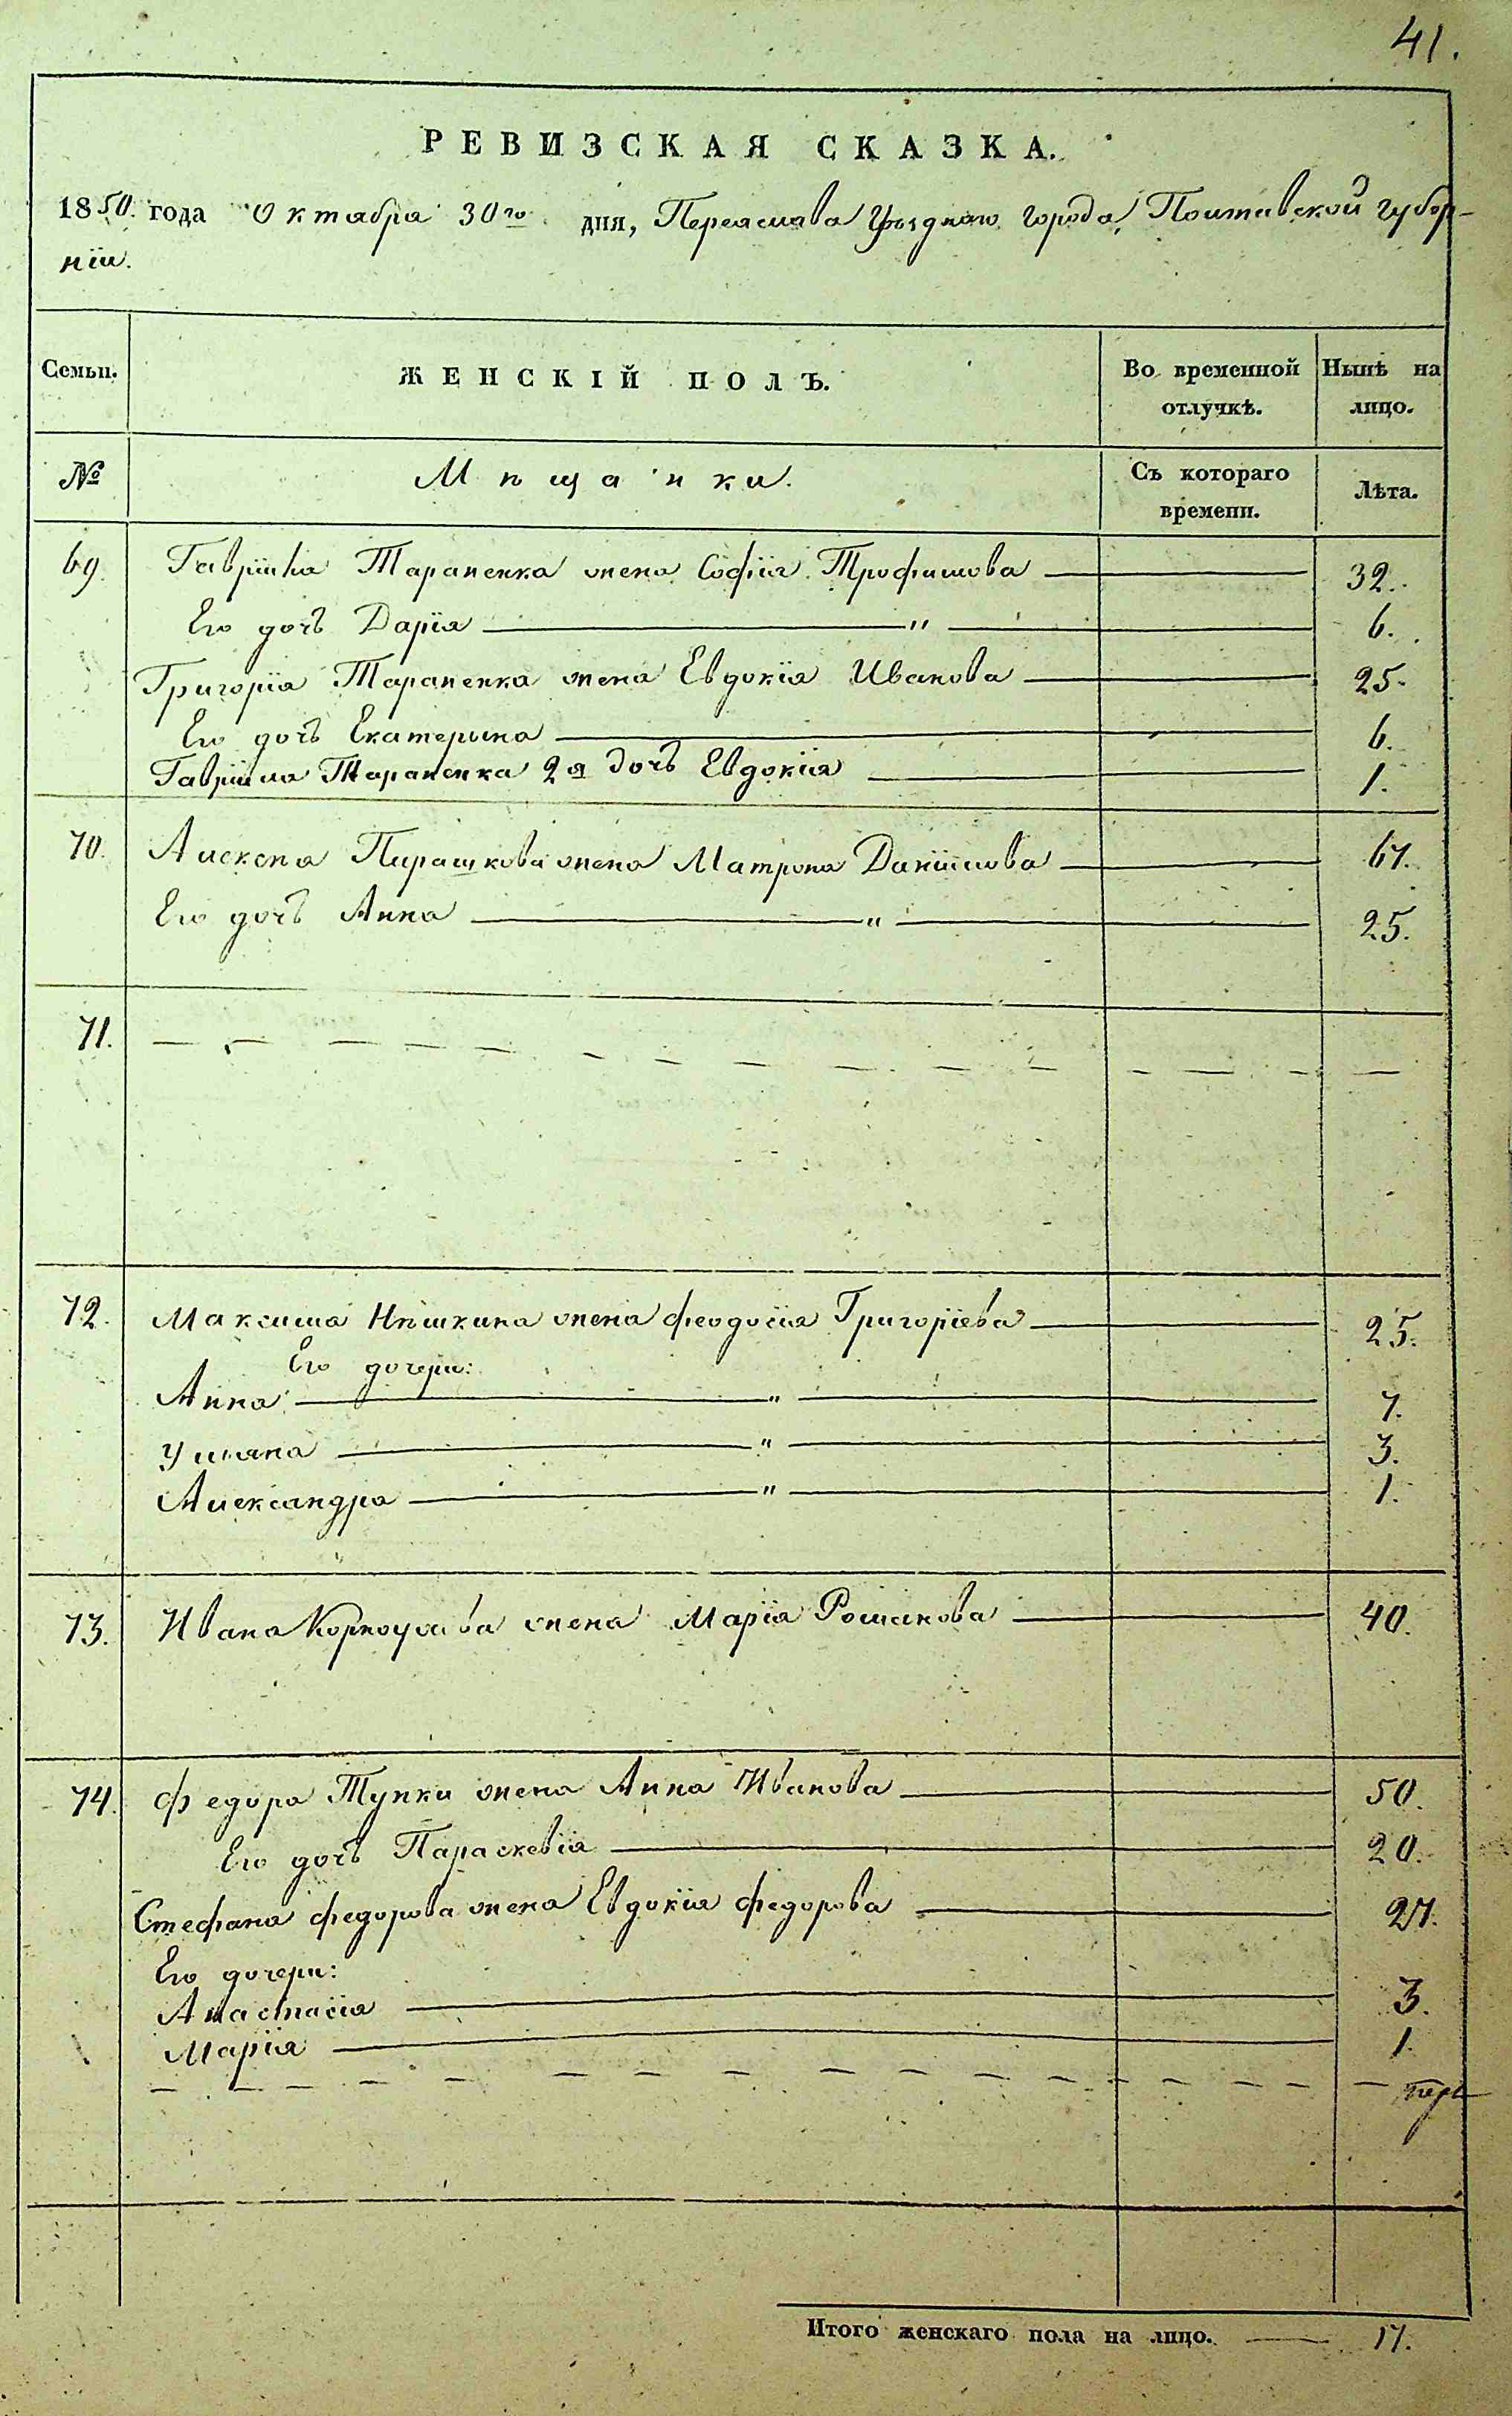 41.
РЕВИЗСКАЯ СКАЗКА.
1850. года Октабра 30го дня, Переаслава Уѣзднаго города, Полтавской губер-
нїи.
Семьи. ЖЕНСКІЙ ПОЛЪ. Во временной отлучкѣ. Нынѣ на лицо.
№ Мѣщанки. Съ котораго времени. Лѣта.
69. Гавріила Тараненка жена Софїя Трофимова 32.
Его дочь Дарїя " 6.
Григорїя Тараненка жена Евдокїя Иванова 25.
Его дочь Екатерина 6.
Гавріила Тараненка 2я дочь Евдокїя 1.
70. Алексѣя жена Матрона Данїилова 67.
Его дочь Анна " 25.
71.
72. Максима Нѣшкина жена Феодосїя Григорїева 25.
Его дочери:
Анна " 7.
Улїяна " 3.
Александра " 1.
73. Ивана жена Марїя Романова 40.
74. Федора Тупки жена Анна Иванова 50.
Его дочь Параскевїя 20.
Стефана Федорова жена Евдокїя Федорова 27.
Его дочери:
Анастасїя 3.
Марїя 1.
Итого женскаго пола на лицо. 17.